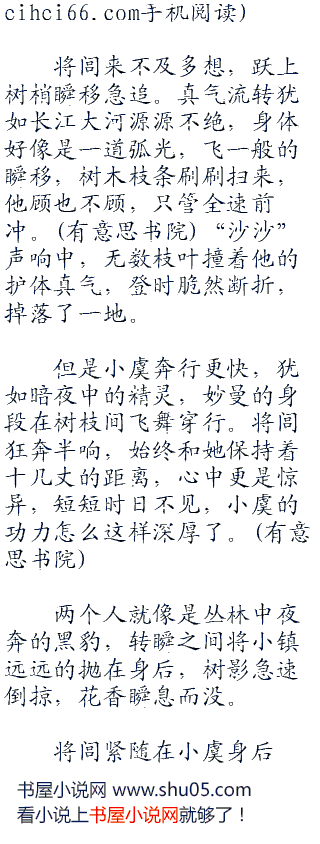 cihci66.com手机阅读)
将闾来不及多想，跃上
树梢瞬移急追。真气流转犹
如长江大河源源不绝，身体
好像是一道弧光，飞一般的
瞬移，树木枝条刷刷扫来，
他顾也不顾，只管全速前
冲。(有意思书院)“沙沙”
声响中，无数枝叶撞着他的
护体真气，登时脆然断折，
掉落了一地。
但是小虞奔行更快，犹
如暗夜中的精灵，妙曼的身
段在树枝间飞舞穿行。将闾
狂奔半响，始终和她保持着
十几丈的距离，心中更是惊
异，短短时日不见，小虞的
功力怎么这样深厚了。(有意
思书院)
两个人就像是丛林中夜
奔的黑豹，转瞬之间将小镇
远远的抛在身后，树影急速
倒掠，花香瞬息而没。
将闾紧随在小虞身后
书屋小说网 www.shu05.com
看小说上书屋小说网就够了！